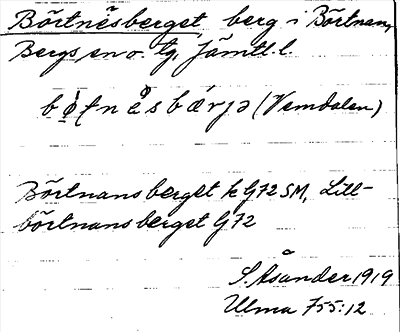 Börtnesberget, berg i Börtnan,
Bergs en o. tg, Jämtl. l.
(Vemdalen)
Börtnansberget k G72 SM, Lill-
börtnansberget G72
S. Åsander 1919
Ulma 755:12